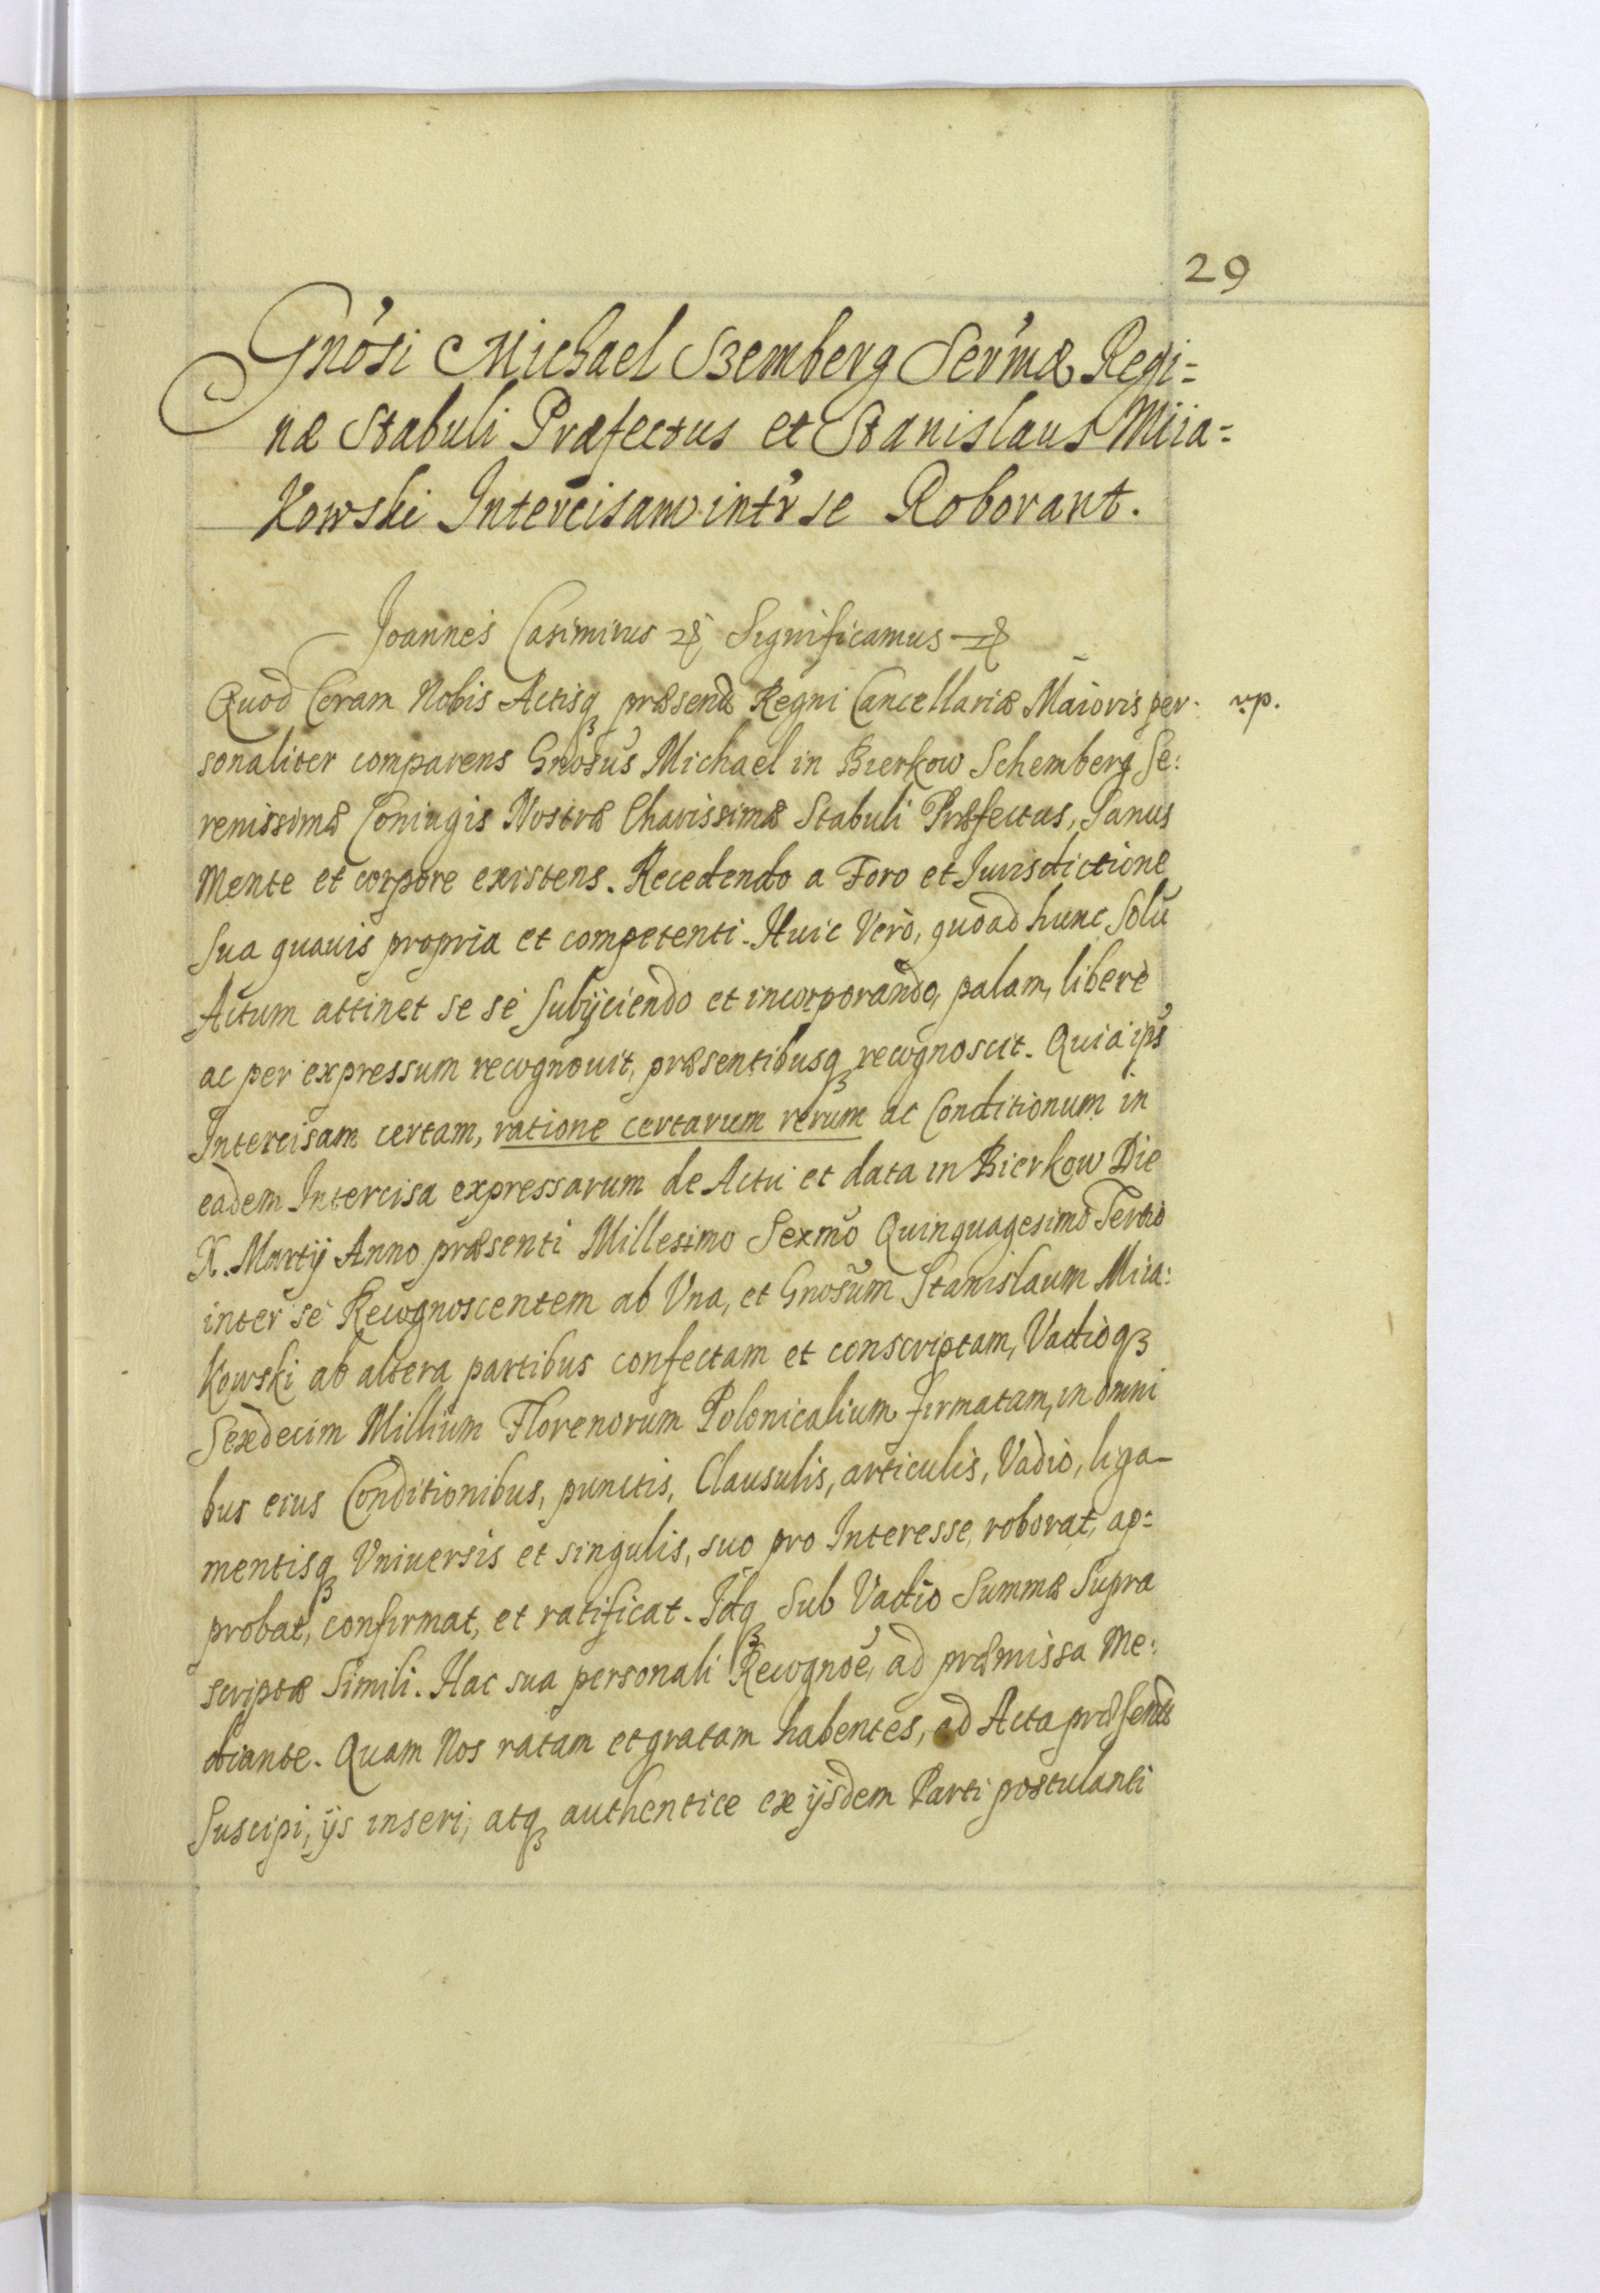 29
Gnosi Michael Szemberg Sermæ Regi=
næ Stabuli Præfectus et Stanislaus Miia=
Kowski Intercisam intr se Roborant.
Joannes Casimirus Significamus
Quod Coram Nobis Actisq præsend Regni Cancellariæ Maioris per- rp.
sonaliter comparens Gnosus Michael in Bierkow Schemberg Se:
renissimæ Coniugis Nostræ Charissimæ Stabuli Præfectus, Sanus
Mente et corpore existens. Recedendo a Foro et Jurisdictione
Sua quavis propria et competenti. Huic Verò, quoad hunc Solū
Actum attinet se se Subÿciendo et incorporando, palam, liberè
ac per expressum recognouit, præsentibusq recognoscit. Quia ips
Intercisam certam, ratione certarum rerum ac Conditionum in
eadem Intercisa expressarum de Actu et data in Bierkow Die
X. Martÿ Anno præsenti Millesimo Sexmo Quinquagesimo Tertio
inter se Recognoscentem ab Vna, et Gnosum Stanislaum Miia:
Kowski ab altera partibus confectam et conscriptam, Vadioqz
Sexdecim Millium Florenorum Polonicalium firmatam, in omni
bus eius Conditionibus, punctis, Clausulis, articulis, Vadio, liga-
mentisq Vniuersis et singulis, suo pro Interesse, roborat, ap=
probat, confirmat, et ratificat. Idq Sub Vadio Summæ Supra
scriptæ Simili. Hac sua personali Recognoe, ad præmissa Me:
diante. Quam Nos ratam et gratam habentes, ad Acta præsend
Suscipi, ÿs inseri, atq authentice ex ÿsdem Parti postulanti